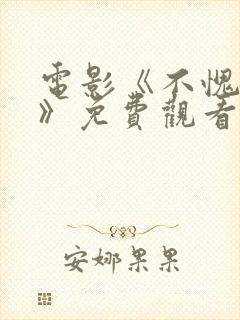 電影《不愧
》免費觀看
安娜果果